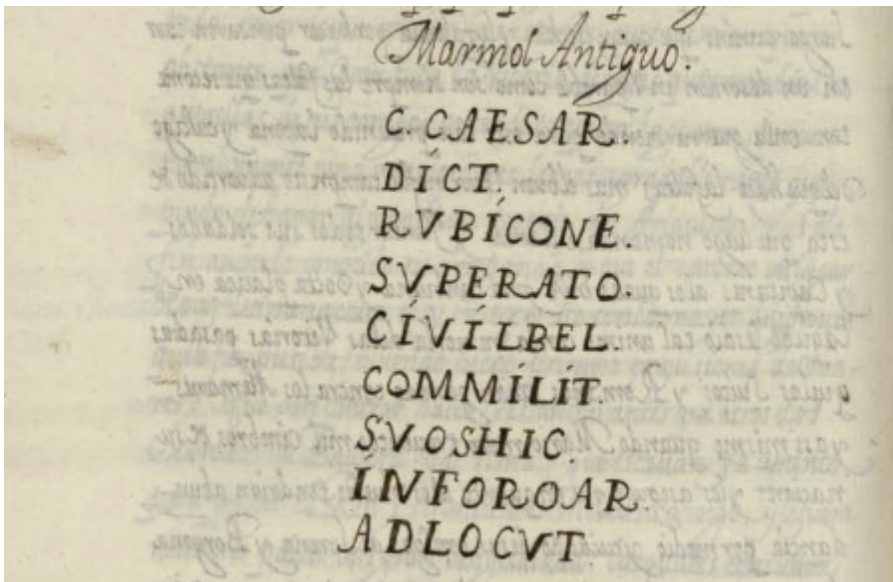 Marmol Antiguo.
C. CAESAR.
DÍCT.
RVBÍCONE.
SVPERATO.
CÍVÍLBEL.
COMMÍLIT
SVOSHIC.
ÍNFOROAR.
ADLOCVT